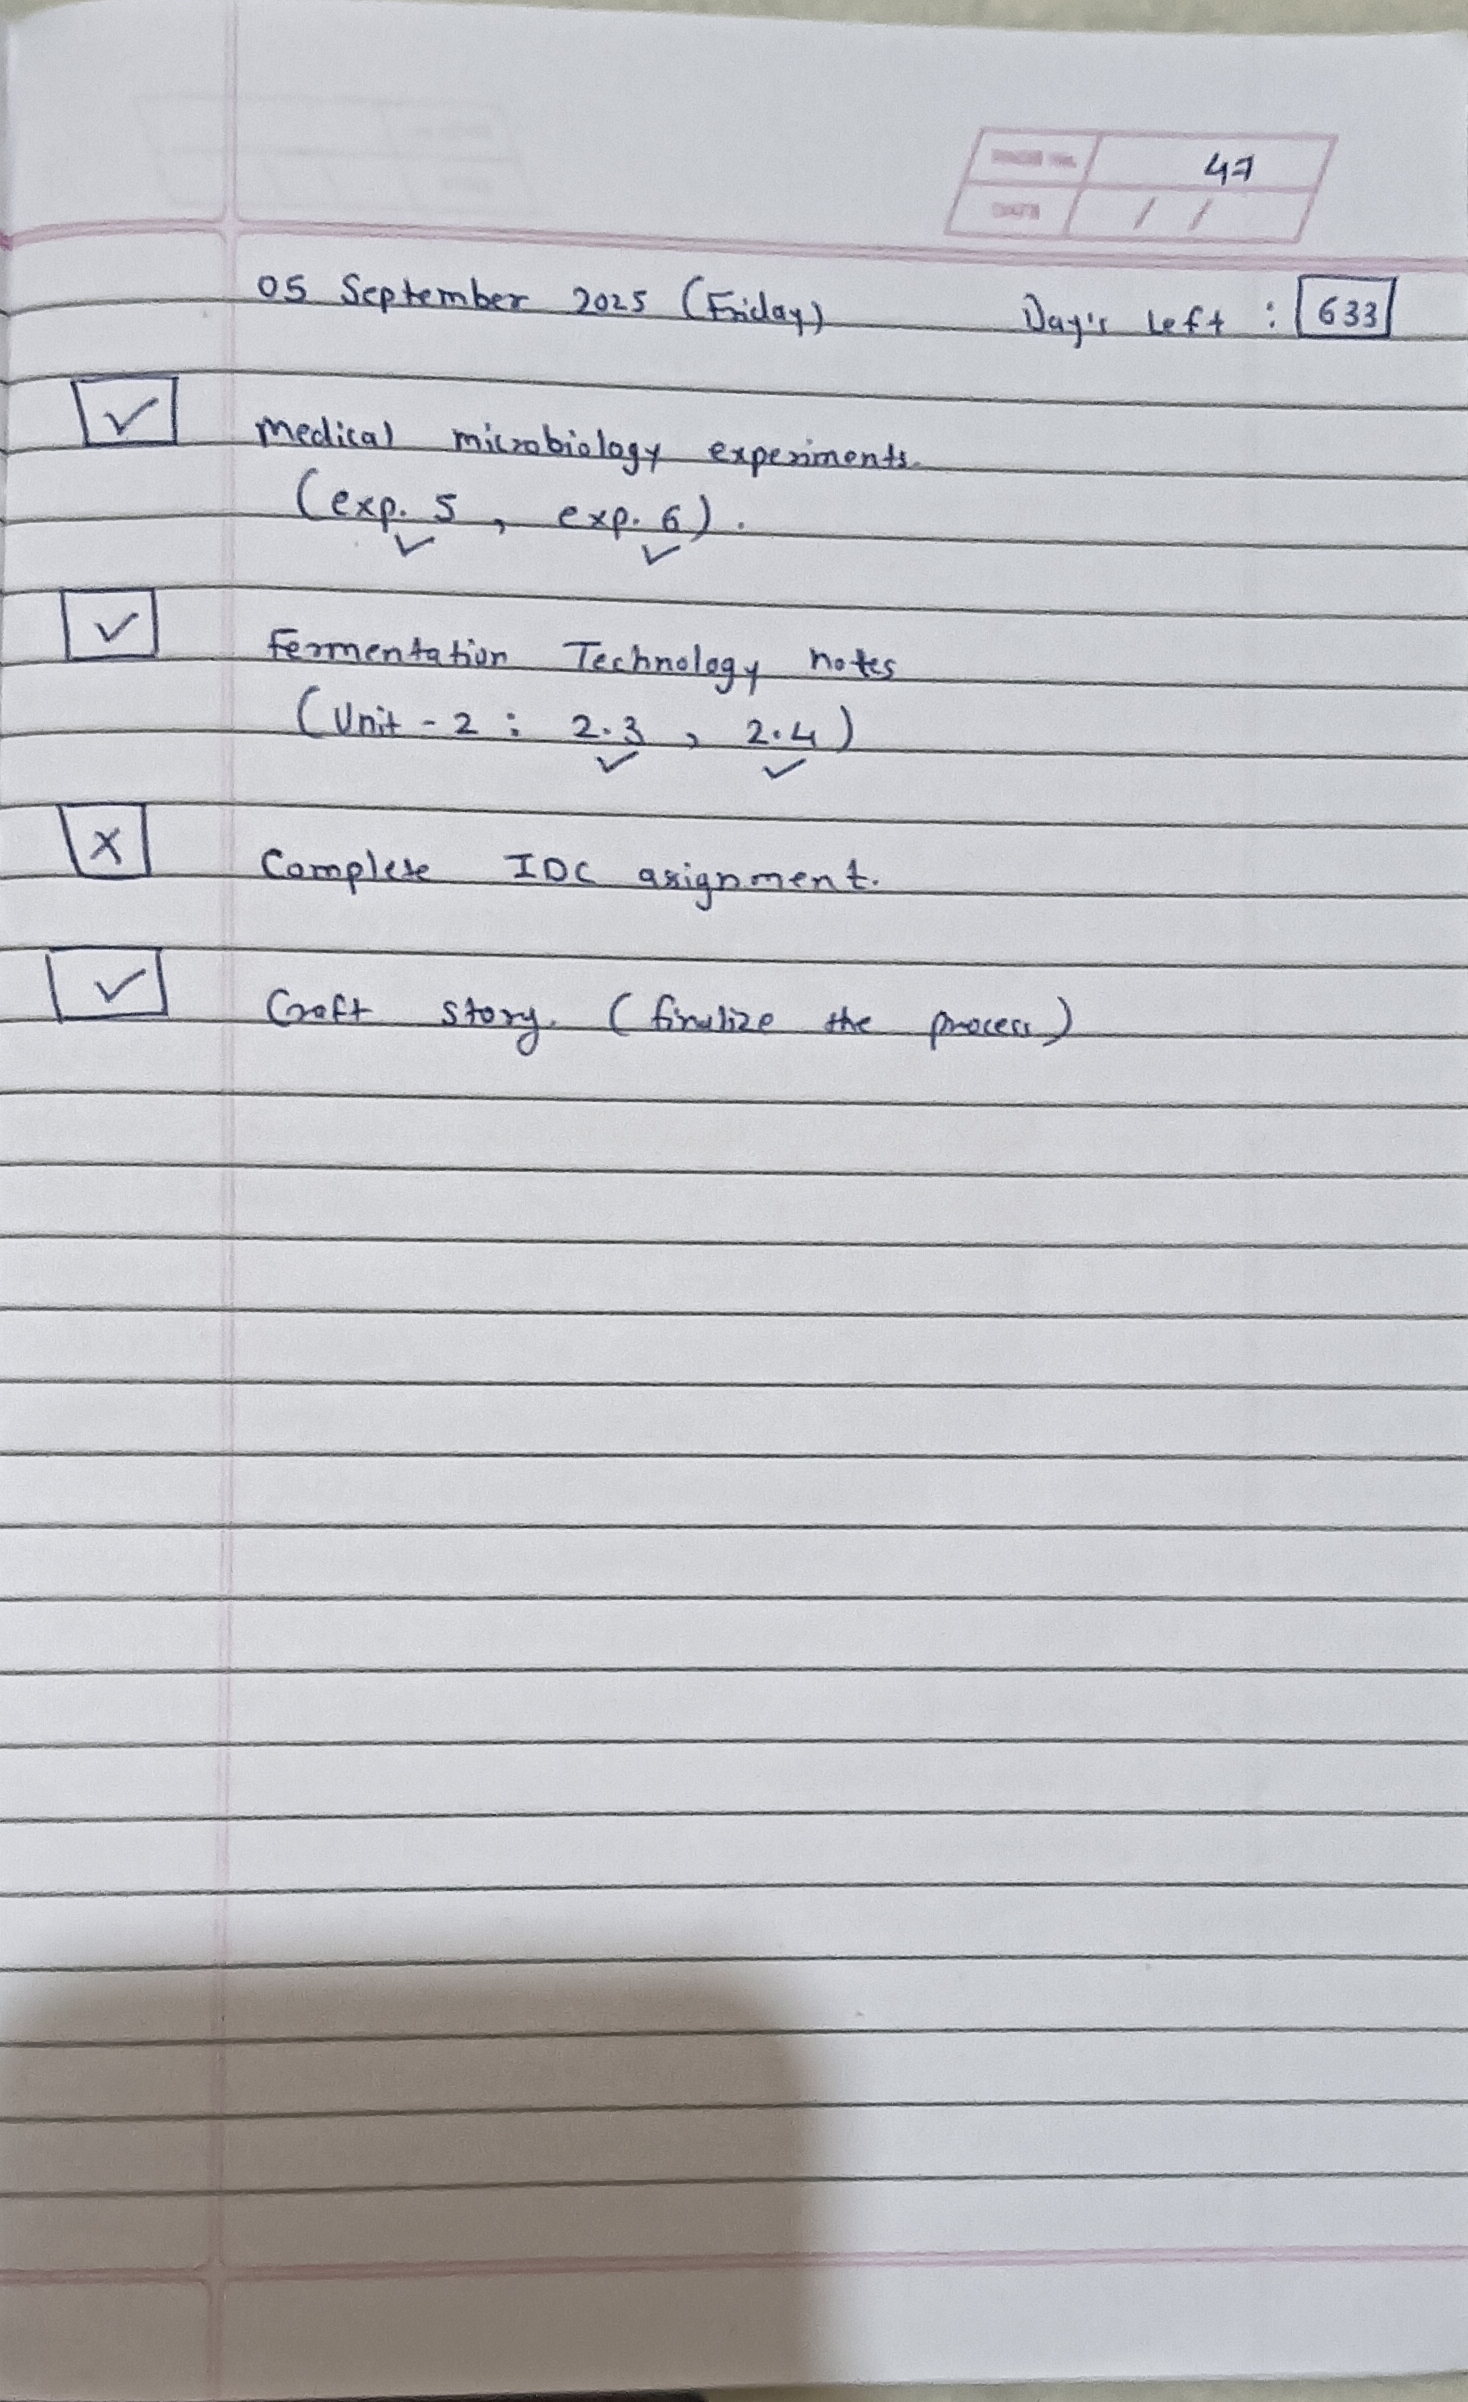 PAGE No. 47
DATE / /
05 September 2025 (Friday) Day's Left : 633
✓ Medical microbiology experiments.
(exp. 5, exp. 6).
✓ ✓
✓ Fermentation Technology notes
(Unit - 2 : 2.3, 2.4)
✓ ✓
x Complete IDC asignment.
✓ Craft story. (finalize the process)